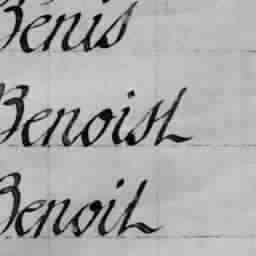 Benis
Benoist
Benoit